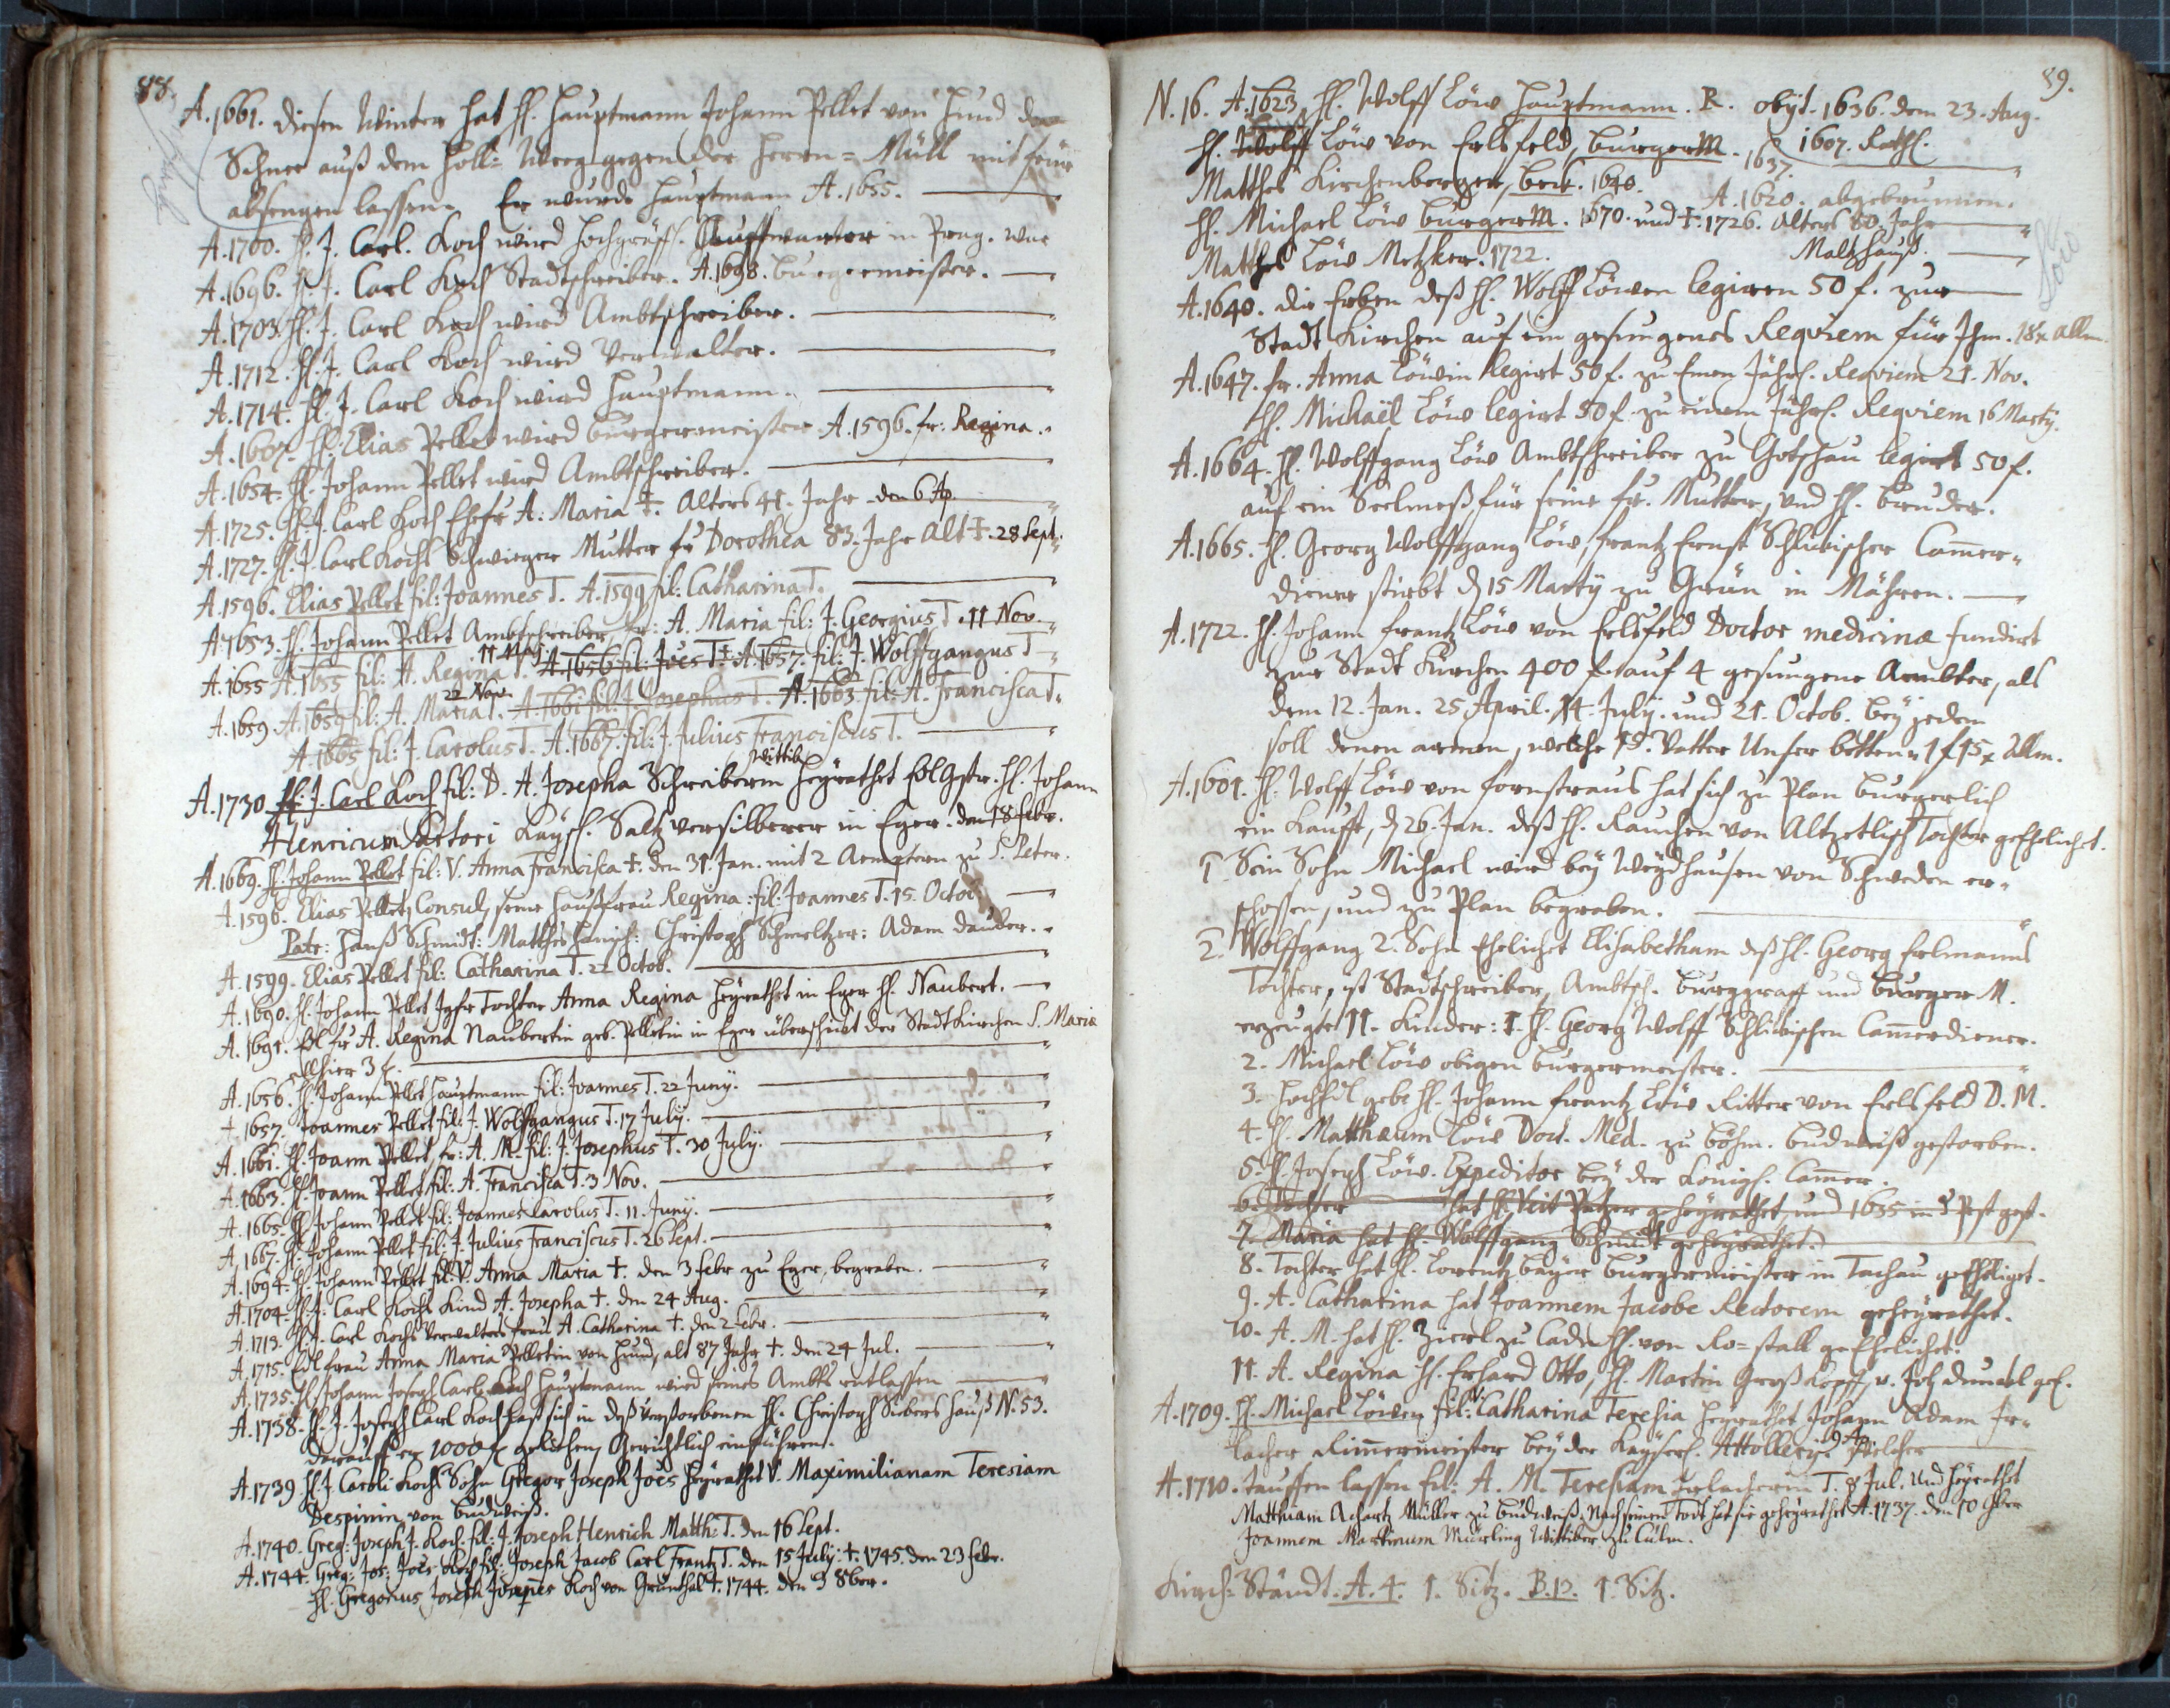 88.
A. 1661. diesen Winter hat H. Hauptmann Johann Pellet von Hund den
Schnee auß dem Holl= Weeg gegen der Herrn=Müll mit feür
absengen lassen. Er wurde Hauptmann A. 1655.
A. 1700. H. J. Carl. Koch wird Hochgräffl. in Prag. war
A. 1696. H. J. Carl Koch Stadtschreiber. A. 1698. burgermeister.
A. 1703. H. J. Carl Koch wird Ambtschreiber.
A. 1712. H. J. Carl Koch wird Verwalter.
A. 1714. H. J. Carl Koch wird Hauptmann.
A. 1607. H. Elias Pellet wird burgermeister. A. 1596. fr: Regina.
A. 1654. H. Johann Pellet wird Ambtschreiber.
A. 1725. H. J. Carl Koch Ehefr A: Maria †. Alters 41. Jahr den 6 Ap.
A. 1727. H. J. Carl Kochs Schwieger Mutter fr Dorothea 83. Jahr Alt †. 28 Sept.
A. 1596. Elias Pellet fil: Joannes T. A. 1599 fil: Catharina T.
A. 1653. H. Johann Pellet Ambtschreiber, fr: A. Maria fil: J. Georgius T. 11 Nov.
A. 1655 A. 1655 fil: A. Regina T. A. 1656 fil: Joēs T. A. 1657. fil: J. Wolffgangus T
22 Nov.
A. 1659. A. 1659 fil: A. Maria T. A. 1661 fil: J. Josephus T. A. 1663 fil: A. Francisca T.
A. 1665 fil: J. Carolus T. A. 1667. fil: J. Julius Franciscus T.
Wittib
A. 1730 H. J. Carl Koch fil: D. A. Josepha Schreiberin heÿrathet H. Johann
Henricum Sartori Kaÿsl. Saltz versilberer in Eger. den 18 febr.
A. 1669. H. Johann Pellet fil: V. Anna Francisca †. den 31. Jan. mit 2 Aemptern zu S. Peter.
A. 1596. Elias Pellet, Consul, seine Haußfrau Regina: fil: Joannes T. 15. Octob.
Pate: Hanß Schmidt: Matthes Hanisch: Christoph Schmeltzer: Adam dauber.
A. 1599. Elias Pellet fil: Catharina T. 22 Octob.
A. 1690. H. Johann Pellet Jgfr Tochter Anna Regina heÿrathet in Eger H. Naubert.
A. 1691. fr A. Regina Naubertin geb. Pelletin in Eger überschickt der Stadt Kirchen S. Maria
allhier 3 f.
A. 1656. H. Johann Pellet Hauptmann fil: Joannes T. 22 Junÿ.
A. 1657. Joannes Pellet fil: J. Wolffgangus T. 17 Julÿ.
A. 1661. H. Joann Pellet, fr: A. M. fil: J. Josephus T. 30 Julÿ.
A. 1663. H. Joann Pellet fil: A. Francisca T. 3 Nov.
A. 1665. H. Johann Pellet fil: Joannes Carolus T. 11. Junÿ.
A. 1667. H. Johann Pellet fil: J. Julius Franciscus T. 26 Sept.
A. 1694. H. Johann Pellet fil: V. Anna Maria †. den 3 febr zu Eger, begraben.
A. 1704. H. J. Carl Kochs Kind A. Josepha †. den 24 Aug.
A. 1713. H. J. Carl Kochs Verwalters frau A. Catharina †. den 2 Febr.
A. 1715. Edl frau Anna Maria Pelletin von Hund, alt 87 Jahr †. den 24 Jul.
A. 1735. H. Johann Joseph Carl Koch Hauptmann wird seines Ambts entlassen
A. 1738. H. J. Joseph Carl Koch last sich in deß verstorbenen H. Christoph Siebers Hauß N. 53.
darauff er 1000 f gelihen, Gerichtlich einführen.
A. 1739 H. J. Caroli Kochs Sohn Gregor Joseph Joēs heÿrathet V. Maximilianam Teresiam
Despinin von budweiß.
A. 1740. Greg: Joseph J. Koch fil: J. Joseph Henrich Matth: T. den 16 Sept.
A. 1744. Greg: Jos: Joēs Koch fil: Joseph Jacob Carl Frantz T. den 15 Julÿ: †. 1745. den 23 febr.
H. Gregorius Joseph Joannes Koch von Grünthal †. 1744. den 3 8ber.
89.
N. 16. A. 1623, H. Wolff Löw Hauptmann. R. obijt. 1636. dem 23. Aug.
H. Wolff Löw von Erlsfeld, burgerM. 1607. Rathh.
Matthes Kirchenberger, beck. 1640. 1637.
A. 1620. abgebrunnen.
H. Michael Löw burgerM. 1670. und †. 1726. Alters 80. Jahr
Matthes Löw Metzker. 1722. Maltzhauß.
Löw
A. 1640. die Erben deß H. Wolff Löwen legiren 50 f. zur
Stadt Kirchen auf ein gesungenes Reqviem für Jhm. 18 x allm.
A. 1647. fr. Anna Löwin legirt 50 f. zu Einen Jährl. Reqviem 21. Nov.
H. Michaël Löw legirt 50 f. zu einem Jährl. Reqviem 16 Martÿ.
A. 1664. H. Wolffgang Löw Ambtschreiber zu Gotschau legirt 50 f.
auf ein Seelmeß für seine fr. Mutter, und H. bruder.
A. 1665. H. Georg Wolffgang Löw, frantz Ernst Schlickischer Cam̄er=
diener stirbt d 15 Martÿ zu Grün in Mähren.
A. 1722. H. Johann frantz Löw von Erlsfeld Doctor medicinæ fundirt
zur Stadt Kirchen 400 f. auf 4 gesungene Aembter, als
dem 12. Jan. 25 April. 14. Julÿ. und 21. Octob. beÿ jedem
soll denen armen, welche 15. Vatter Unser betten 1 f 15 x Allm.
A. 1601. H. Wolff Löw von fornstraus hat sich zu Plan burgerlich
ein kaufft, d 26. Jan. deß H. Rauchen von Altzetlisch Tochter geEhelichet.
1 Sein Sohn Michael wird beÿ Weÿdhausen von Schweden er=
schossen, und zu Plan begraben.
2. Wolffgang 2. Sohn Ehelichet Elisabetham deß H. Georg Erlmanns
Tochter, ist Stadtschreiber, Ambtsch. Burggraff und burger M.
erzeugte 11. Kinder: 1. H. Georg Wolff Schlickischen Cam̄erdiener.
2. Michael Löw obigen burgermeister.
3. H. Johann frantz Löw Ritter von Erlsfeld D. M.
4. H. Matthæum Löw Doct. Med. zu böhm. budweiß gestorben.
5. H. Joseph Löw. Expeditor beÿ der Königl. Cam̄er.
6. Tochter hat H. Veit Patzer geheÿrathet und 1635 in d Pest gest.
7. Maria hat H. Wolffgang Schmidt geheÿrathet.
8. Tochter hat H. Lorentz baÿer burgermeister in Tachau geEheliget.
9. A. Catharina hat Joannem Jacobe Rectorem geheÿrathet.
10. A. M. hat H. Zierel zu Caden H. von Ro=stall geEhelichet.
11. A. Regina H. Erhard Otto, H. Martin Großkopff, v. Joh dunckl geh.
A. 1709. H. Michael Löwen fil: Catharina Teresia heÿrathet Johann Adam Jr=
lacher Rim̄ermeister beÿ der Kaÿserl. Attollerÿ. 9 Ap. Welcher
A. 1710. tauffen lassen fil: A. M. Teresiam Jrlacherin T. 8 Jul. Und heÿrathet
Matthiam Achartz Müller zu budweiß. Nach seinen Todt hat sie geheÿrathet A. 1737. den 10 9ber
Joannem Martinum Mürling Wittiber zu Culm.
Kirch=Ständt. A. 4. 1. Sitz. B. 12. 1. Sitz.